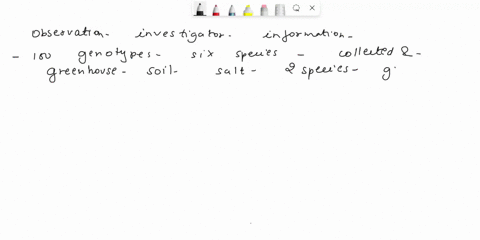 Observation- investigator- information-
- 100 genotypes- six species - collected &-
greenhouse- soil- salt- 2 species- g